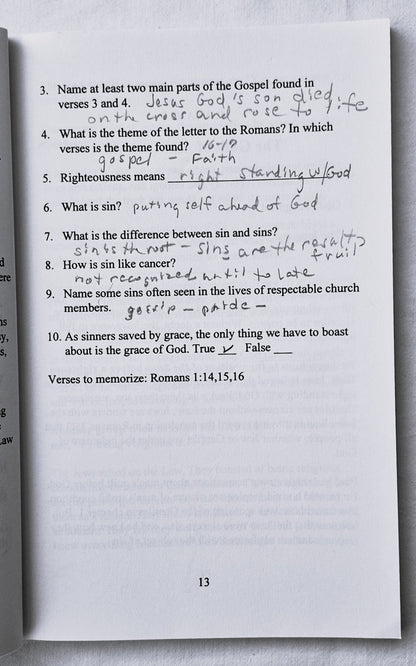 3. Name at least two main parts of the Gospel found in
verses 3 and 4. Jesus God's son died
on the cross and rose to life
4. What is the theme of the letter to the Romans? In which
verses is the theme found? 16-17
gospel - Faith
5. Righteousness means right standing w/God
6. What is sin? puting self ahead of God
7. What is the difference between sin and sins?
sin is th root - sins are the result
fruit
8. How is sin like cancer?
not recognized until to late
9. Name some sins often seen in the lives of respectable church
members. gossip - pride -
10. As sinners saved by grace, the only thing we have to boast
about is the grace of God. True ✓ False ___
Verses to memorize: Romans 1:14,15,16
13
d
ere
ns
y,
s,
g
:
aw